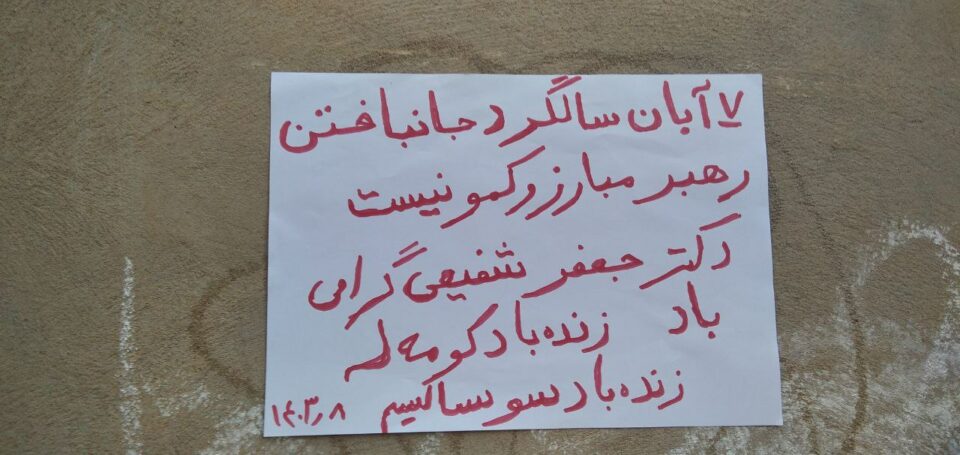 ۷ آبان سالگرد جانباختن
رهبر مبارز و کمونیست
دکتر جعفر شفیعی گرامی
باد زنده باد کومه له
زنده باد سوسیالیسم
۱۴۰۳٫۸